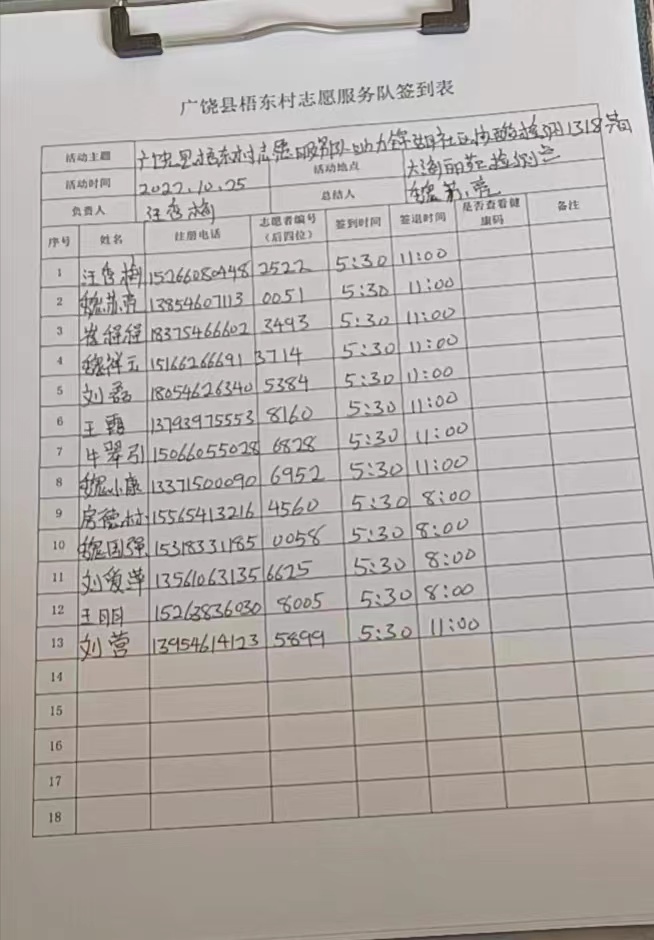 广饶县梧东村志愿服务队签到表
活动主题 广饶县梧东村志愿服务队助力锦湖社区核酸检测1318岗
活动时间 2022.10.25 活动地点
负责人 汪秀梅 总结人 魏苏亮
序号 姓名 注册电话 志愿者编号（后四位） 签到时间 签退时间 是否查看健康码 备注
1 汪秀梅 15266080448 2522 5:30 11:00
2 魏苏亮 13854607113 0051 5:30 11:00
3 崔程程 18375466602 3493 5:30 11:00
4 魏祥玉 15166266691 3714 5:30 11:00
5 刘磊 18054626340 5384 5:30 11:00
6 王霞 13793975553 8160 5:30 11:00
7 牛翠引 15066055028 6828 5:30 11:00
8 魏小康 13371500090 6952 5:30 11:00
9 房德村 15565413216 4560 5:30 8:00
10 魏国强 15318331185 0058 5:30 8:00
11 刘爱萍 13561063135 6625 5:30 8:00
12 王明 15263836030 8005 5:30 8:00
13 刘营 13954614123 5899 5:30 11:00
14
15
16
17
18